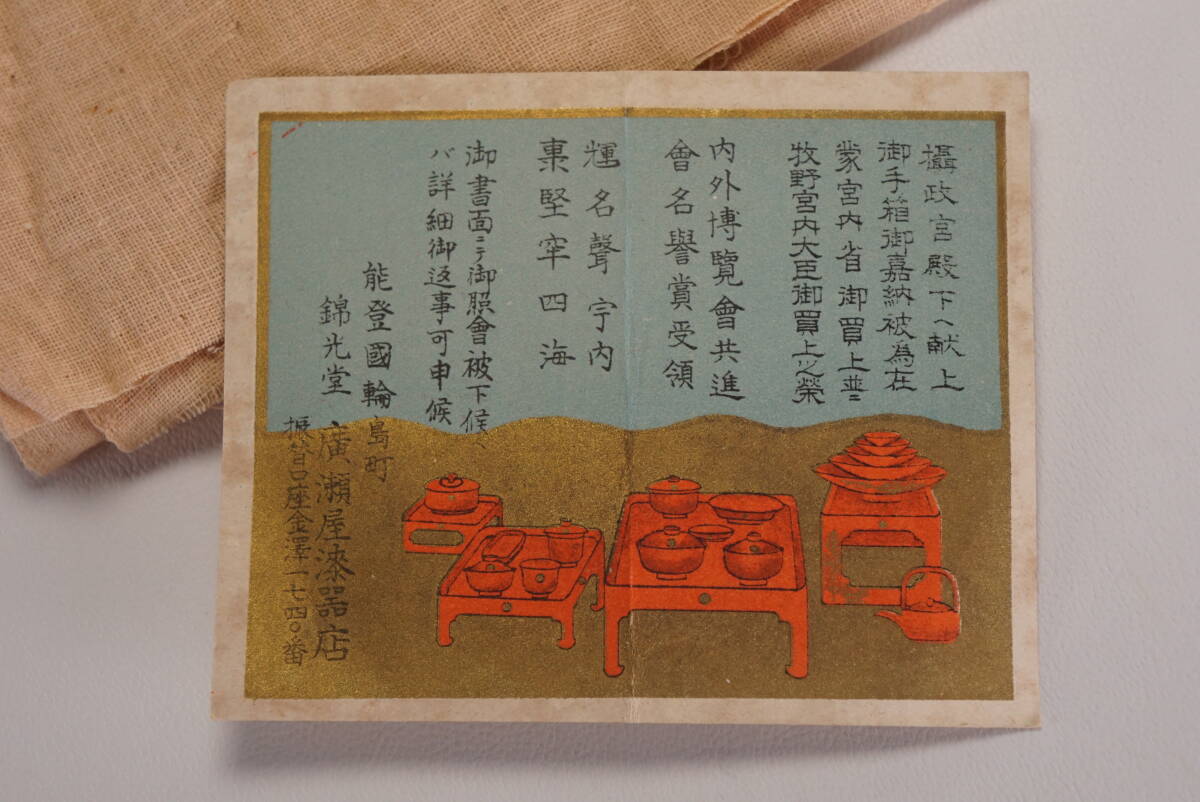 攝政宮殿下ヘ献上
御手箱御嘉納被為在
蒙宮内省御買上並ニ
牧野宮内大臣御買上之榮
内外博覽會共進
會名譽賞受領
輝名聲宇内
裏堅牢四海
御書面ニテ御照會被下候ヘ
バ詳細御返事可申候
能登國輪島町
錦光堂 廣瀬屋漆器店
振替口座金澤一七四〇番